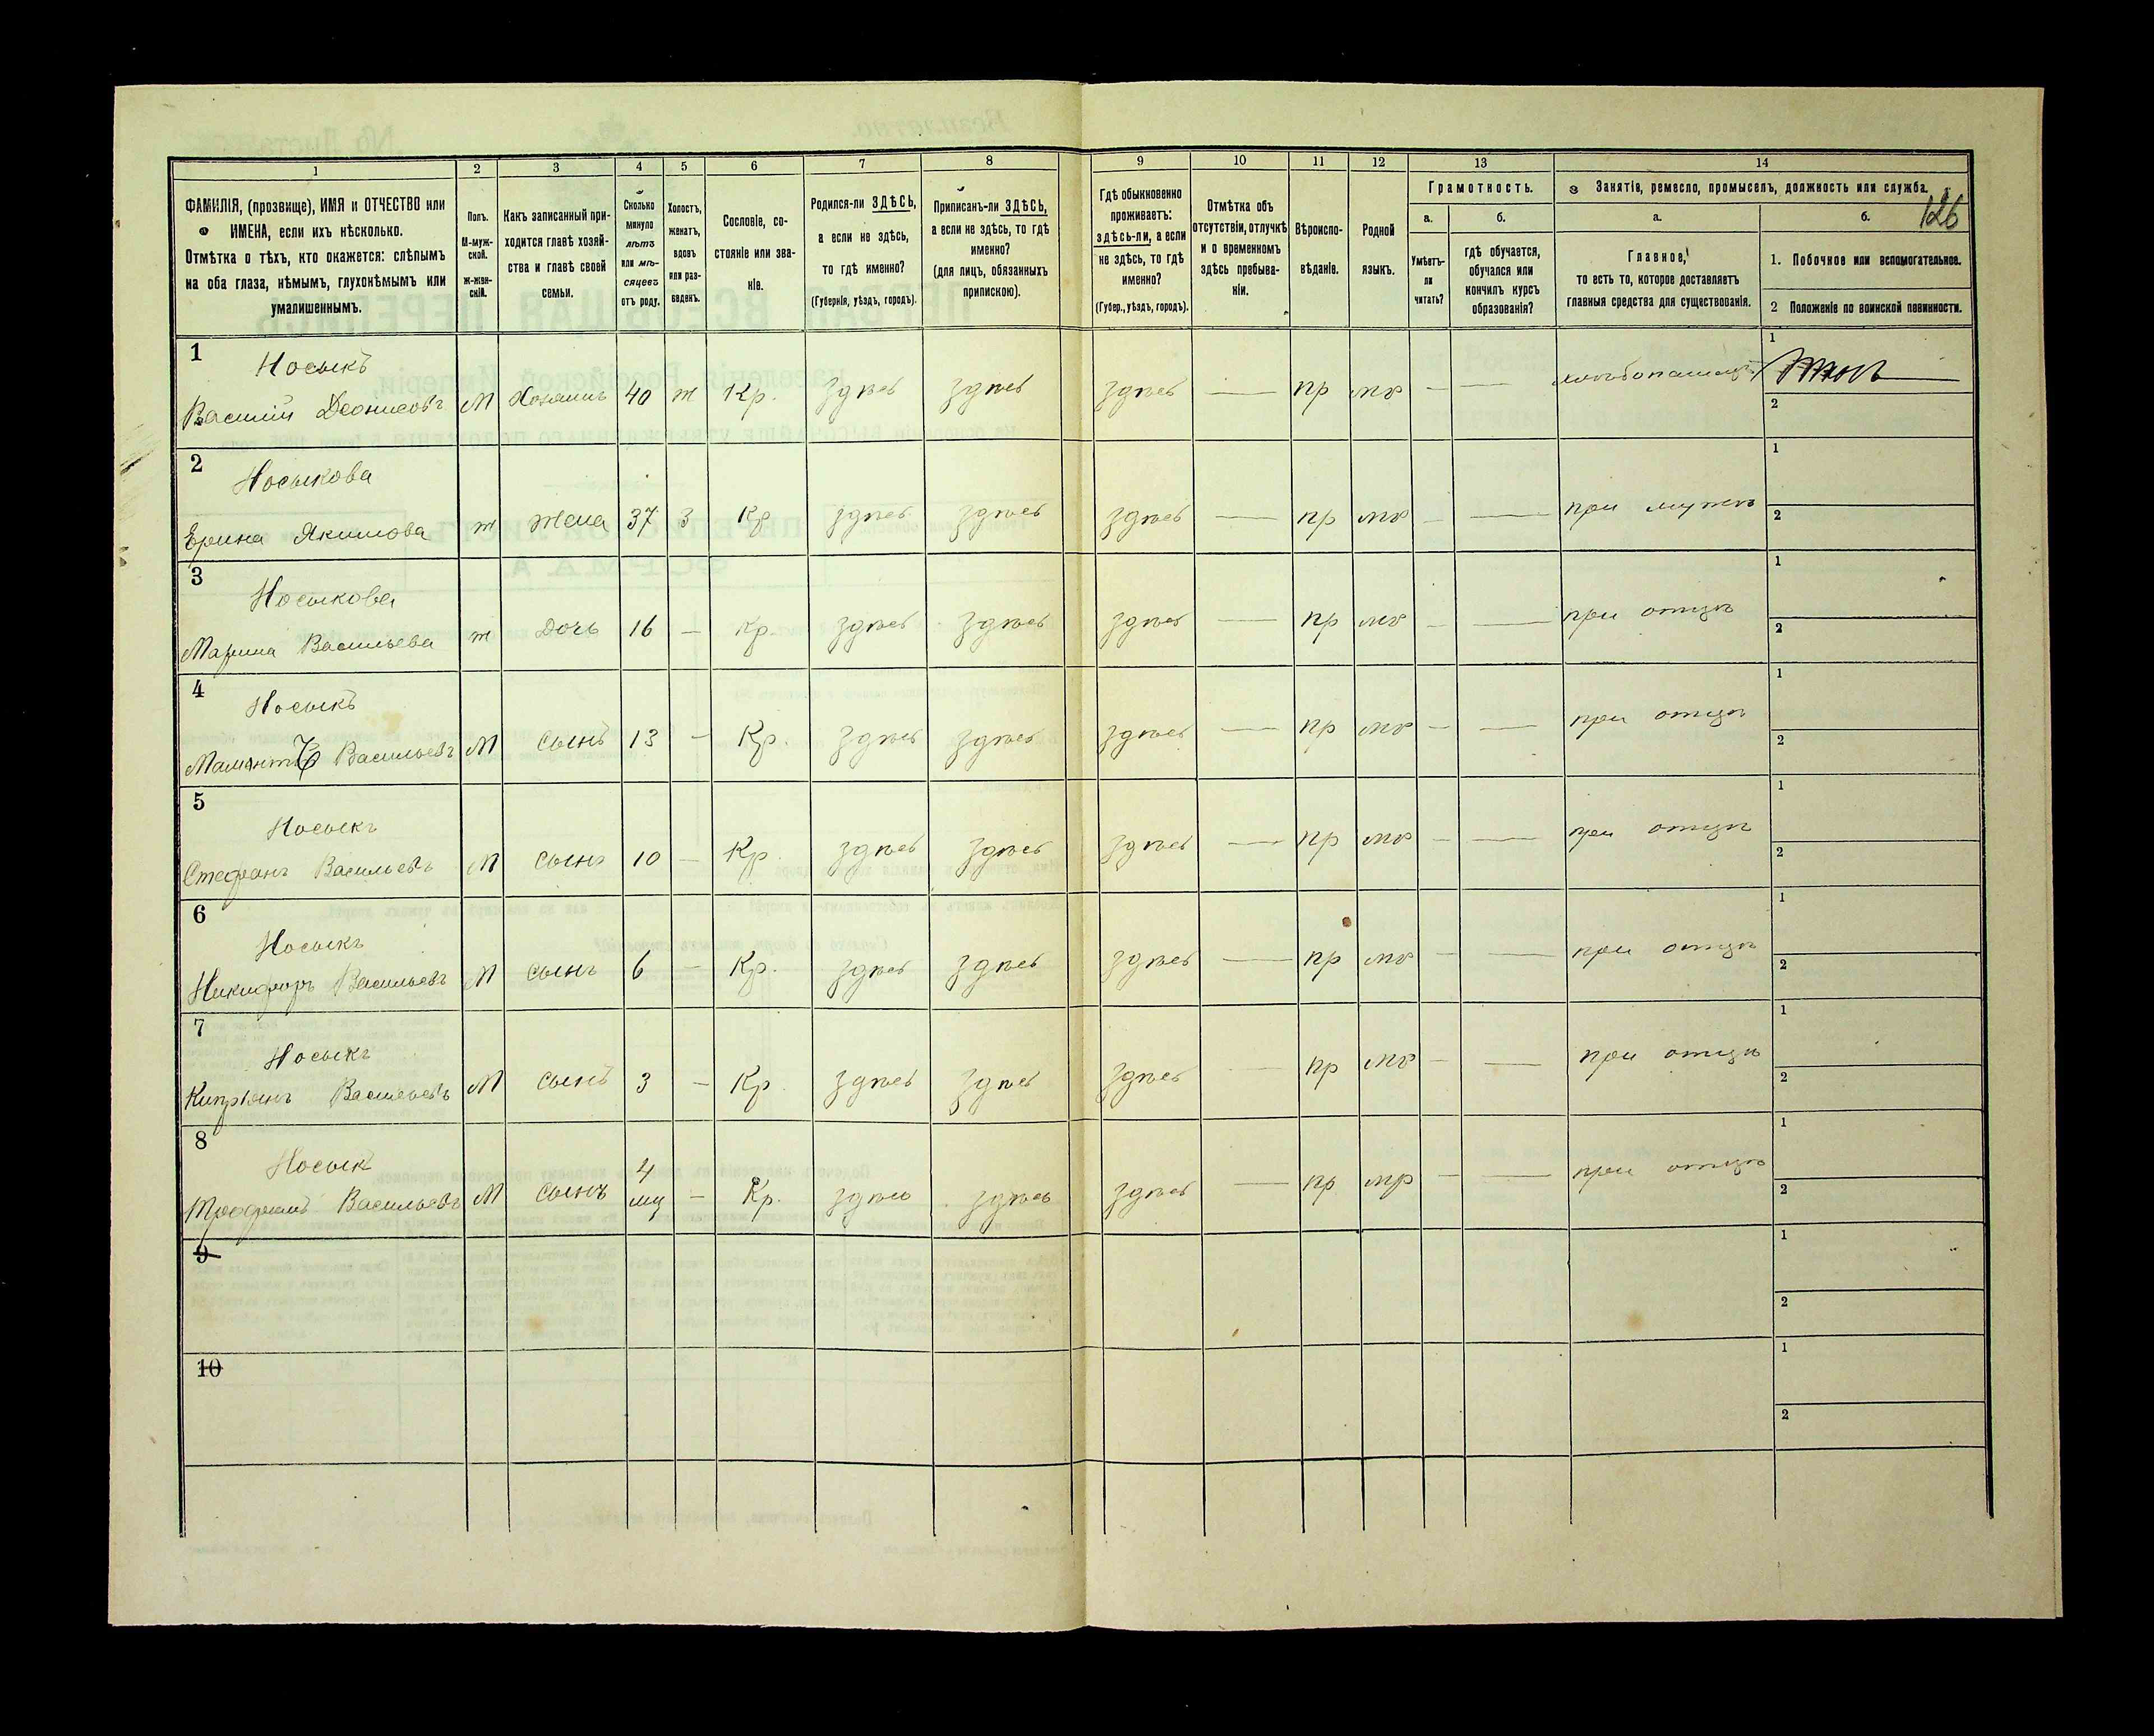 1 2 3 4 5 6 7 8 9 10 11 12 13 14
ФАМИЛІЯ, (прозвище), ИМЯ и ОТЧЕСТВО или
ИМЕНА, если ихъ нѣсколько.
Отмѣтка о тѣхъ, кто окажется: слѣпымъ
на оба глаза, нѣмымъ, глухонѣмымъ или
умалишеннымъ.
Полъ.
М-муж-
ской.
ж-жен-
скій.
Какъ записанный при-
ходится главѣ хозяй-
ства и главѣ своей
семьи.
Сколько
минуло
лѣтъ
или мѣ-
сяцевъ
отъ роду.
Холостъ,
женатъ,
вдовъ
или раз-
веденъ.
Сословіе, со-
стояніе или зва-
ніе.
Родился-ли ЗДѢСЬ,
а если не здѣсь,
то гдѣ именно?
(Губернія, уѣздъ, городъ).
Приписанъ-ли ЗДѢСЬ,
а если не здѣсь, то гдѣ
именно?
(для лицъ, обязанныхъ
припискою).
Гдѣ обыкновенно
проживаетъ:
здѣсь-ли, а если
не здѣсь, то гдѣ
именно?
(Губер., уѣздъ, городъ).
Отмѣтка объ
отсутствіи, отлучкѣ
и о временномъ
здѣсь пребыва-
ніи.
Вѣроиспо-
вѣданіе.
Родной
языкъ.
Грамотность.
а.
Умѣетъ-
ли
читать?
б.
гдѣ обучается,
обучался или
кончилъ курсъ
образованія?
Занятія, ремесло, промыселъ, должность или служба.
126
а.
Главное,
то есть то, которое доставляетъ
главныя средства для существованія.
б.
1. Побочное или вспомогательное.
2 Положеніе по воинской повинности.
1
Носыкъ
Василій Деонисовъ М Хозяинъ 40 ж Кр. здѣсь здѣсь здѣсь — пр мр — — хлѣбопашецъ
1
2
2
Носыкова
Ерина Якимова ж жена 37 з Кр здѣсь здѣсь здѣсь — пр мр — — при мужѣ
1
2
3
Носыкова
Марина Васильева ж Дочь 16 — Кр. здѣсь здѣсь здѣсь — пр мр — — при отцѣ
1
2
4
Носыкъ
Васильевъ М сынъ 13 — Кр. здѣсь здѣсь здѣсь — пр мр — — при отцѣ
1
2
5
Носыкъ
Стефанъ Васильевъ М сынъ 10 — Кр. здѣсь здѣсь здѣсь — пр мр — — при отцѣ
1
2
6
Носыкъ
Никифоръ Васильевъ М сынъ 6 — Кр. здѣсь здѣсь здѣсь — пр мр — — при отцѣ
1
2
7
Носыкъ
Кипріянъ Васильевъ М сынъ 3 — Кр. здѣсь здѣсь здѣсь — пр мр — — при отцѣ
1
2
8
Носыкъ
Трофимъ Васильевъ М сынъ 4 мц — Кр. здѣсь здѣсь здѣсь — пр мр — — при отцѣ
1
2
9
1
2
10
1
2